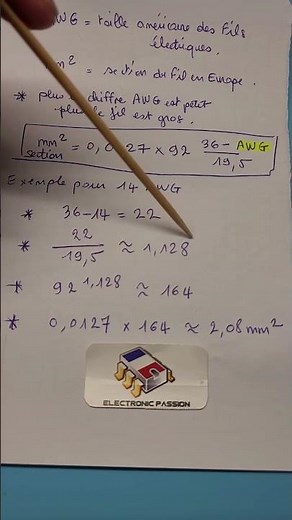 AWG = taille américaine des Fils
électriques.
mm² = section du fil en Europe.
* plus chiffre AWG est petit
plus le fil est gros.
mm² section = 0,0127 × 92 (36 - AWG)/19,5
Exemple pour 14 AWG
* 36-14 = 22
* 22/19,5 ≈ 1,128
* 92^1,128 ≈ 164
* 0,0127 × 164 ≈ 2,08 mm²
ELECTRONIC PASSION